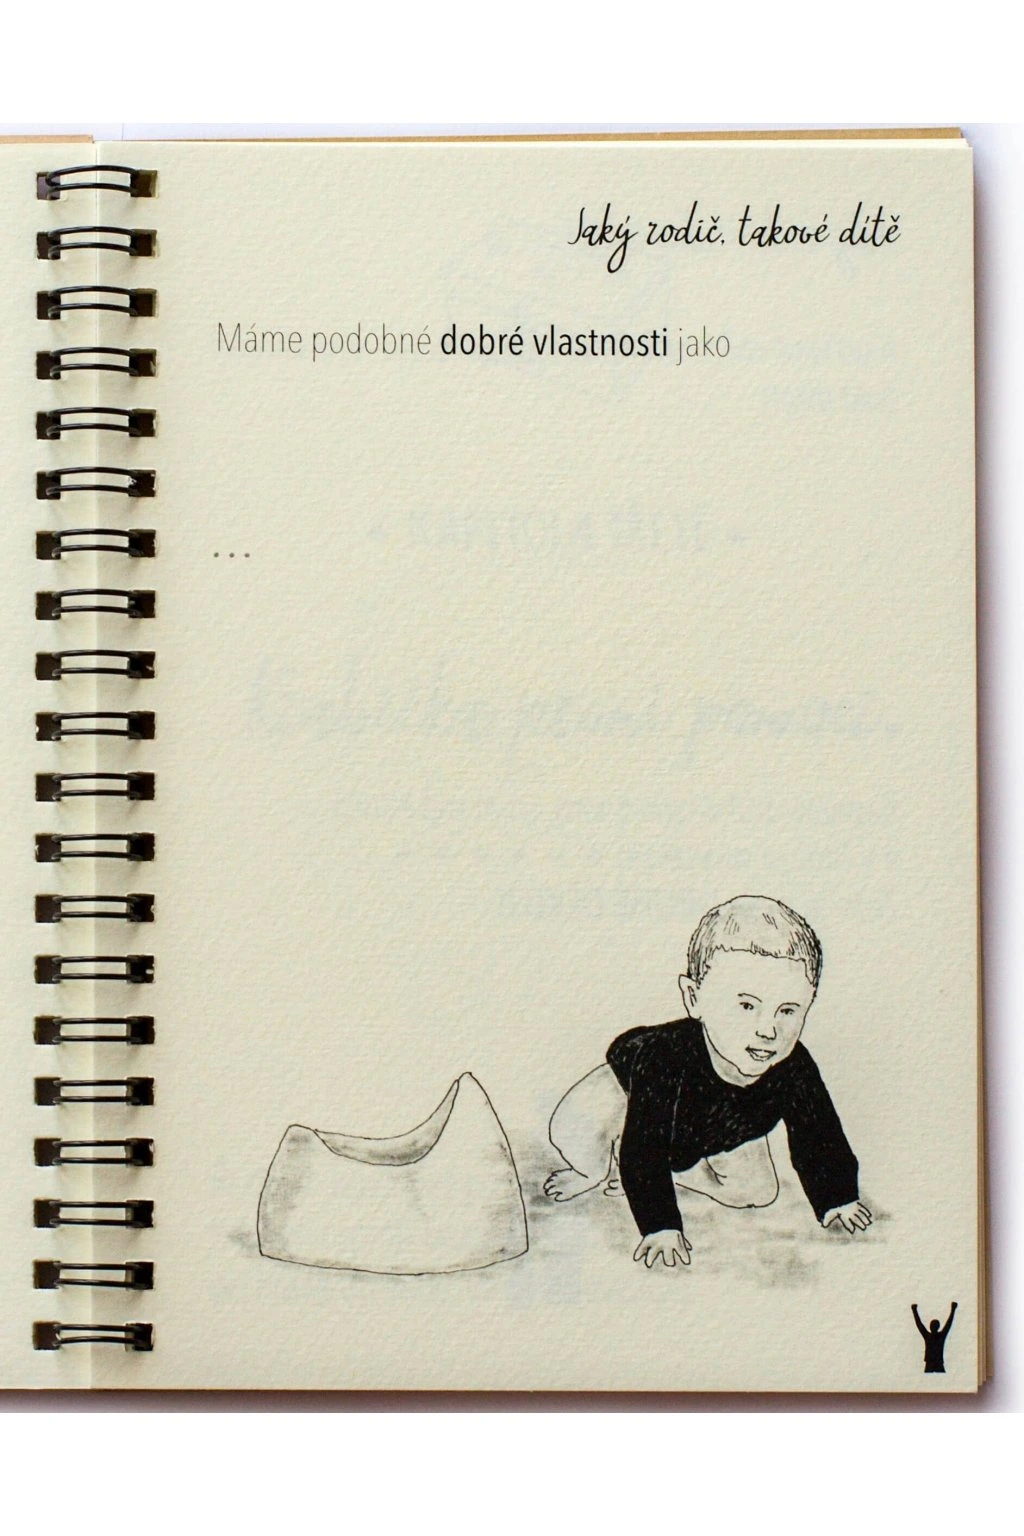 Jaký rodič, takové dítě
Máme podobné dobré vlastnosti jako
...